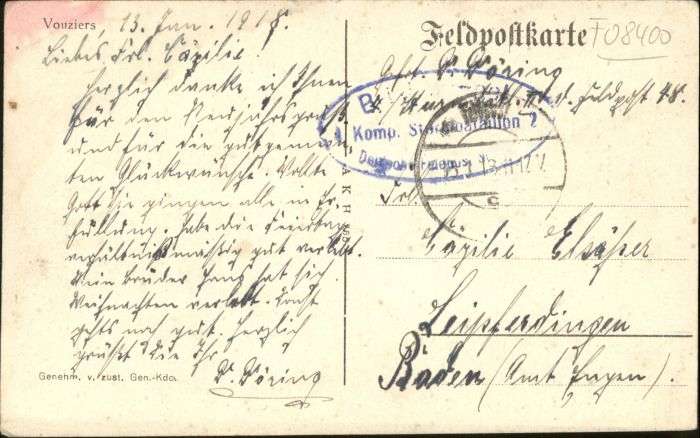 Vouziers, 13. Jan. 1918.
Liebes Frl. Cäzilie!
Herzlich danke ich Ihnen
für den Neujahrsgruß
und für die gutgemein-
ten Glückwünsche. Wollte
Gott sie gingen alle in Er-
füllung. Habe die Feiertage
verhältnismäßig gut verlebt.
Mein Bruder Hans hat sich
Weihnachten verlobt. Sonst
gehts noch gut. Herzlich
grüßt Sie Ihr
V. Döring
Genehm. v. zust. Gen.-Kdo.
Feldpostkarte
F08400
Abs. V. Döring
Feldpost 48.
Komp. Sturmbataillon 7
Deutsche Feldpost
c
Frl.
Cäzilie Elsäßer
Leipferdingen
Baden (Amt Engen).